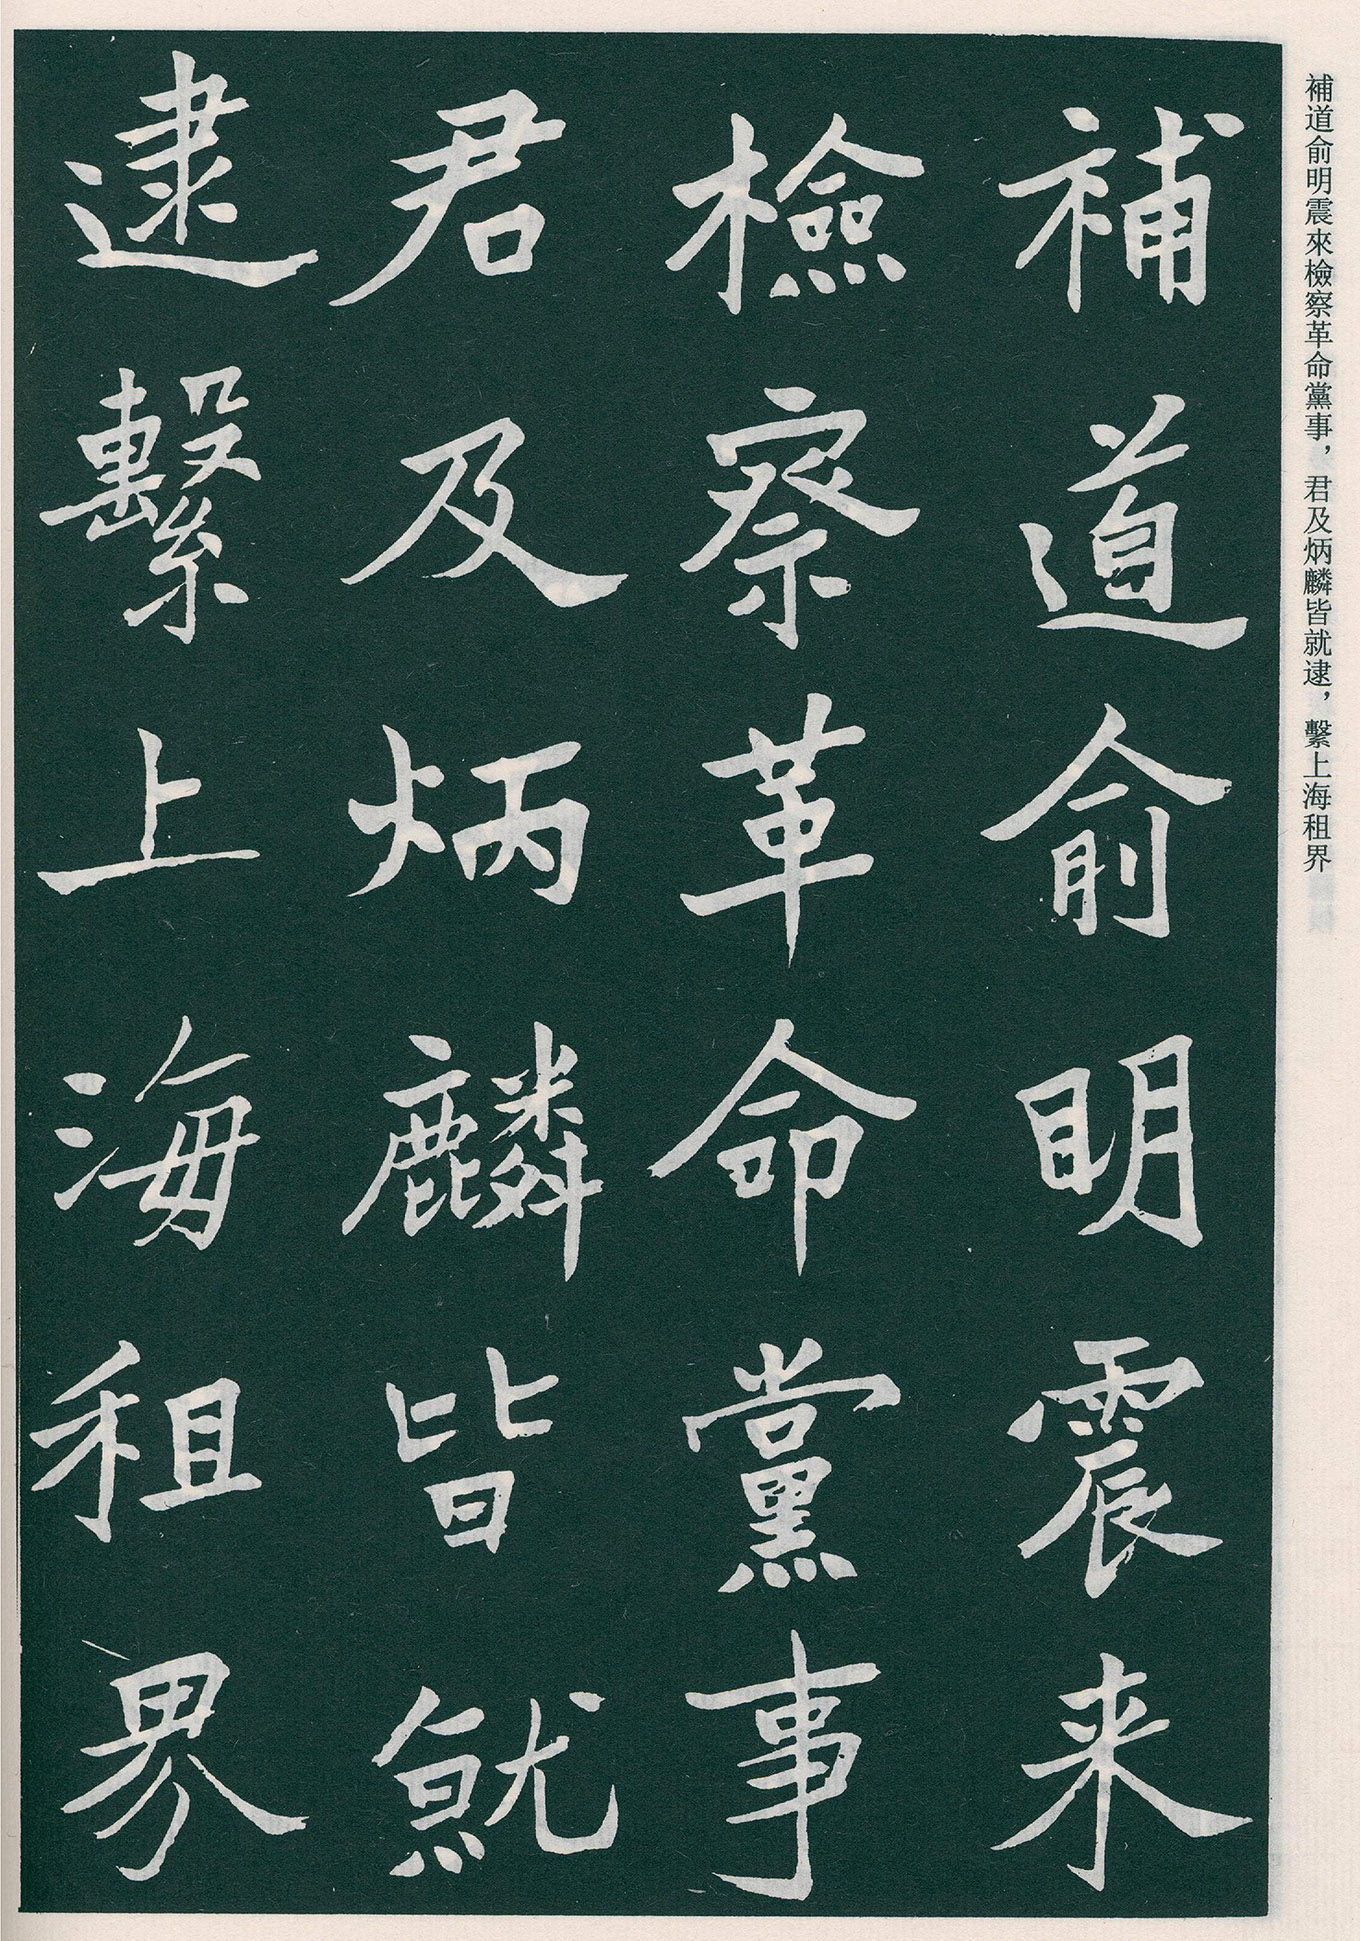 補道俞明震来
檢察革命黨事
君及炳麟皆就
逮繫上海租界
補道俞明震來檢察革命黨事，君及炳麟皆就逮，繫上海租界